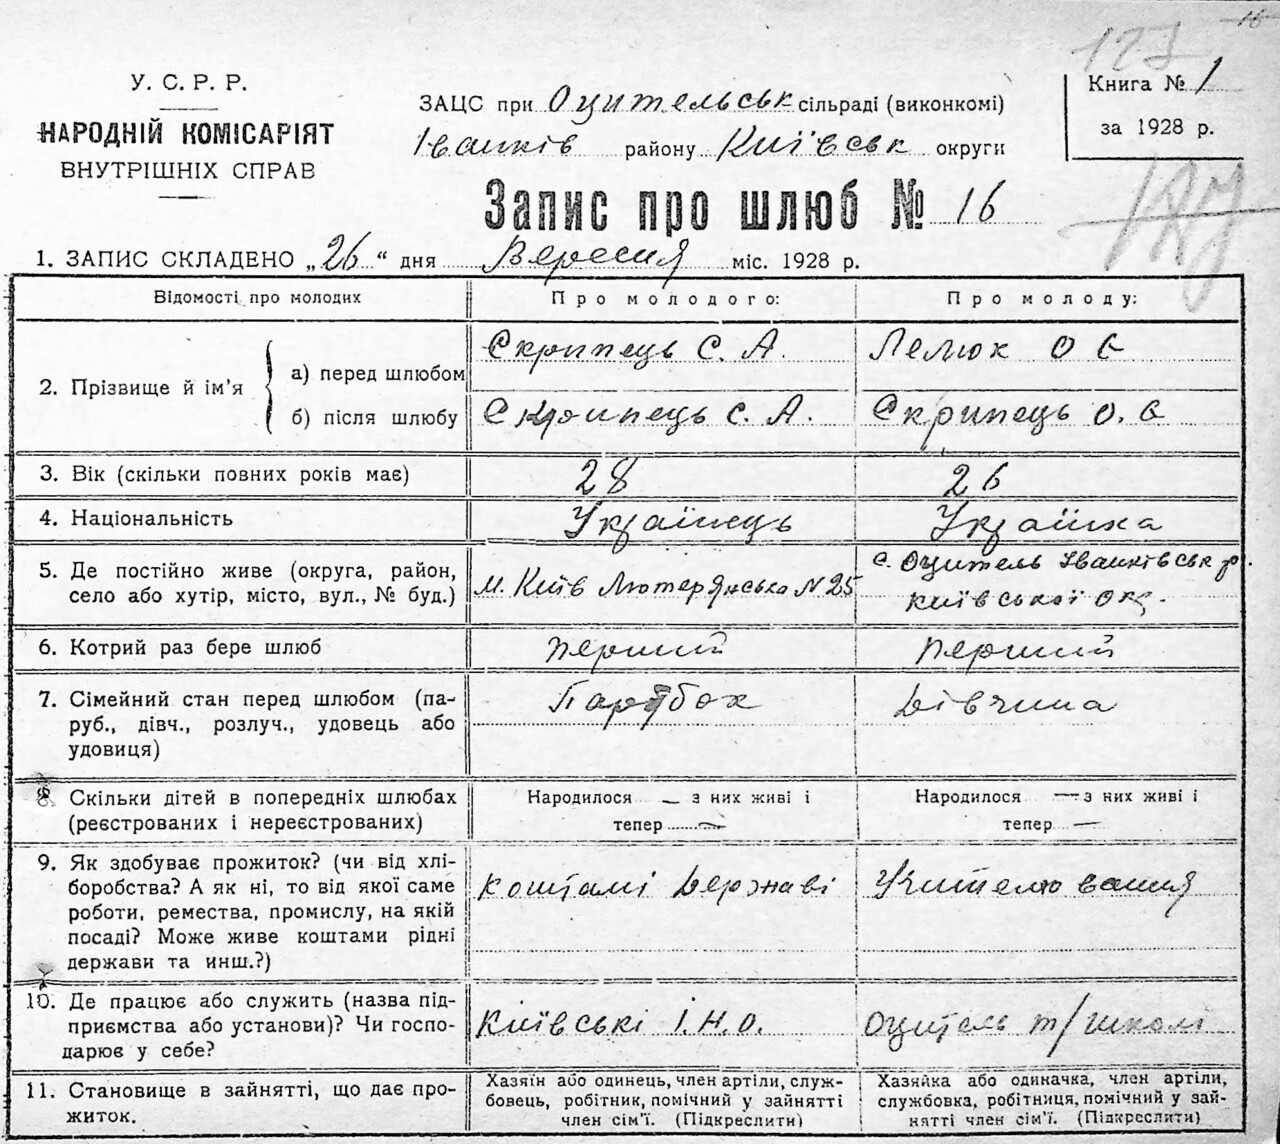 16
127
У. С. Р. Р.
НАРОДНІЙ КОМІСАРІЯТ
ВНУТРІШНІХ СПРАВ
ЗАЦС при Оцительськ сільраді (виконкомі)
Іванків району Київськ округи
Книга № 1
за 1928 р.
Запис про шлюб № 16
127
1. ЗАПИС СКЛАДЕНО „26“ дня Вересня міс. 1928 р.
Відомості про молодих
Про молодого:
Про молоду:
2. Прізвище й ім'я
а) перед шлюбом
Скрипець С. А.
Лелюк О Є
б) після шлюбу
Скрипець С. А.
Скрипець О. Є
3. Вік (скільки повних років має)
28
26
4. Національність
Українець
Українка
5. Де постійно живе (округа, район,
село або хутір, місто, вул., № буд.)
м. Київ Лютерянська N 25
с. Оцитель Іванківськ р.
Київської окр.
6. Котрий раз бере шлюб
перший
перший
7. Сімейний стан перед шлюбом (па-
руб., дівч., розлуч., удовець або
удовиця)
Парубок
Дівчина
8. Скільки дітей в попередніх шлюбах
(реєстрованих і нереєстрованих)
Народилося — з них живі і
тепер —
Народилося — з них живі і
тепер —
9. Як здобуває прожиток? (чи від хлі-
боробства? А як ні, то від якої саме
роботи, ремества, промислу, на якій
посаді? Може живе коштами рідні
держави та инш.?)
коштамі Державі
Учителювання
10. Де працює або служить (назва під-
приємства або установи)? Чи госпо-
дарює у себе?
Київські І. Н. О.
Оцитель т/школі
11. Становище в зайнятті, що дає про-
житок.
Хазяїн або одинець, член артіли, служ-
бовець, робітник, помічний у зайнятті
член сім'ї. (Підкреслити)
Хазяйка або одиначка, член артіли,
службовка, робітниця, помічний у зай-
нятті член сім'ї. (Підкреслити)